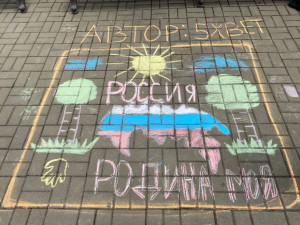 АВТОР: 5ХВЕТ
РОССИЯ
РОДИНА МОЯ